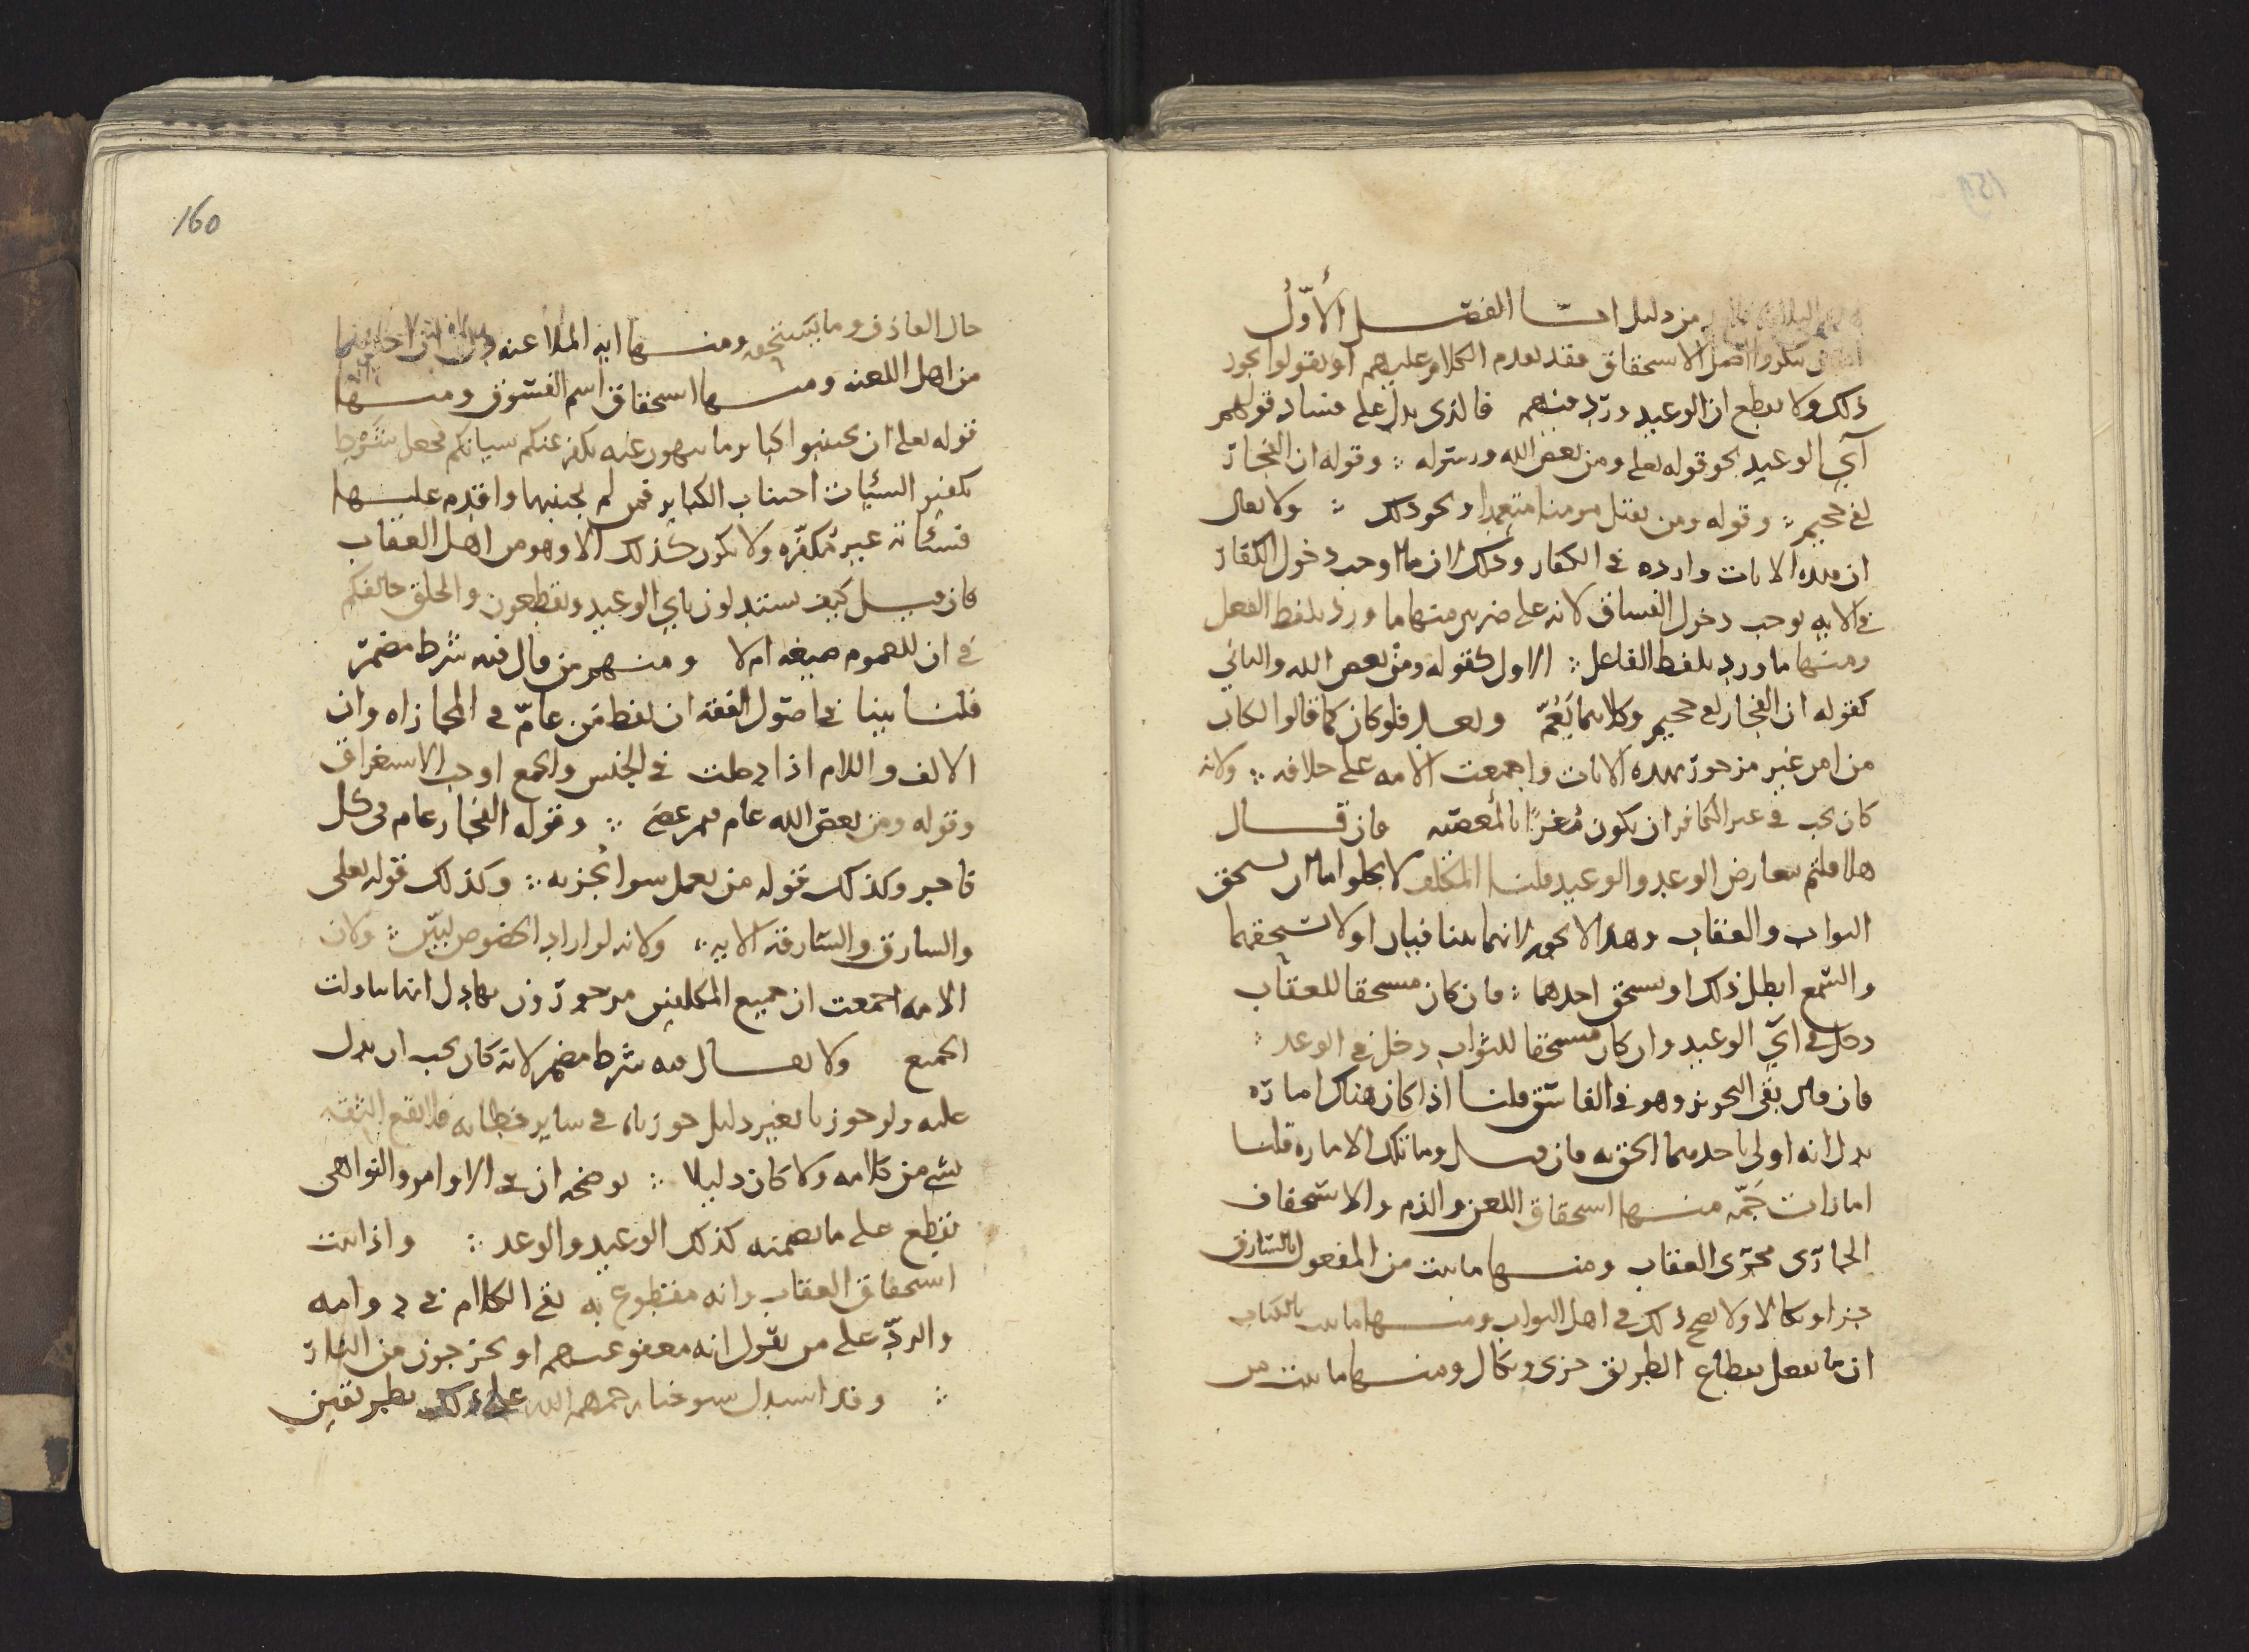 من دليل اما الفصل الأول
ينكروا اصل الاستحقاق فقد تقدم الكلام عليهم او يقولوا يجوز
ذلك ولا يقطع ان الوعيد ورد فيهم فالذي يدل على فساد قولهم
آي الوعيد نحو قوله تعلى ومن يعص الله ورسوله وقوله ان الفجار
لفي جحيم وقوله ومن يقتل مومنا متعمدا ونحو ذلك ولا يقال
ان هذه الايات وارده في الكفار وذلك ان ما اوجب دخول الكفار
في الايه يوجب دخول الفساق لانه على ضربين منها ما ورد بلفظ الفعل
ومنها ما ورد بلفظ الفاعل الاول كقوله ومن يعص الله والثاني
كقوله ان الفجار لفي جحيم وكلاهما يعم وبعد فلو كان كما قالوا لكان
من امر غير مزجور بهذه الايات واجمعت الامه على خلافه ولانه
كان يجب في غير الكافر ان يكون مغرًا بالمعصيه فان قال
هلا قلتم تعارض الوعد والوعيد قلنا المكلف لا يخلوا اما ان يستحق
الثواب والعقاب وهذا لا يجوز لانهما يتنافيان او لا يستحقهما
والسمع ابطل ذلك او يستحق احدهما فان كان مستحقا للعقاب
دخل في آي الوعيد وان كان مستحقا للثواب دخل في الوعد
فان قال بقي التجويز وهو في الفاسق قلنا اذا كان هناك اماره
يدل انه اولى باحدهما الحق به فان قيل وما تلك الاماره قلنا
امارات جمه منها استحقاق اللعن والذم والاستخفاف
الجاري مجرى العقاب ومنها ما يثبت من المفعول بالسارق
جزا ونكالا ولا يصح ذلك في اهل الثواب ومنها ما ثبت بالكتاب
ان ما يفعل بقطاع الطريق خزي ونكال ومنها ما يثبت من
160
حال القاذف وما يستحقه ومنها ايه الملاعنه
من اهل اللعنه ومنها استحقاق اسم الفسوق ومنها
قوله تعلى ان تجتنبوا كباير ما تنهون عنه نكفر عنكم سياتكم فجعل شرط
تكفير السيئات اجتناب الكباير فمن لم يجتنبها واقدم عليها
فسيئاته غير مكفره ولا يكون كذلك الا وهو من اهل العقاب
فان قيل كيف تستدلون باي الوعيد وتقطعون والخلق خالفكم
في ان للعموم صيغه ام لا ومنهم من قال فيه شرط مضمر
قلنا بينا في اصول الفقه ان لفظ من عام في المجازاه وان
الالف واللام اذا دخلت في الجنس والجمع اوجب الاستغراق
وقوله ومن يعص الله عام فيمن عصى وقوله الفجار عام في كل
فاجر وكذلك قوله من يعمل سوا يجز به وكذلك قوله تعلى
والسارق والسارقه الايه ولانه لو اراد الخصوص لبين ولان
الامه اجمعت ان جميع المكلفين مزجورون بها دل انها تناولت
الجميع ولا يقال فيه شرط مضمر لانه كان يجب ان يدل
عليه ولو جوزنا بغير دليل جوزناه في ساير خطابه فلا تقع الثقه
بشي من كلامه ولا كان دليلا يوضحه ان في الاوامر والنواهي
نقطع على ما تضمنه كذلك الوعيد والوعد واذا ثبت
استحقاق العقاب وانه مقطوع به بقي الكلام في دوامه
والرد على من يقول انه معفو عنهم او يخرجون من النار
وقد استدل شيوخنا رحمهم الله على ذلك بطريقين